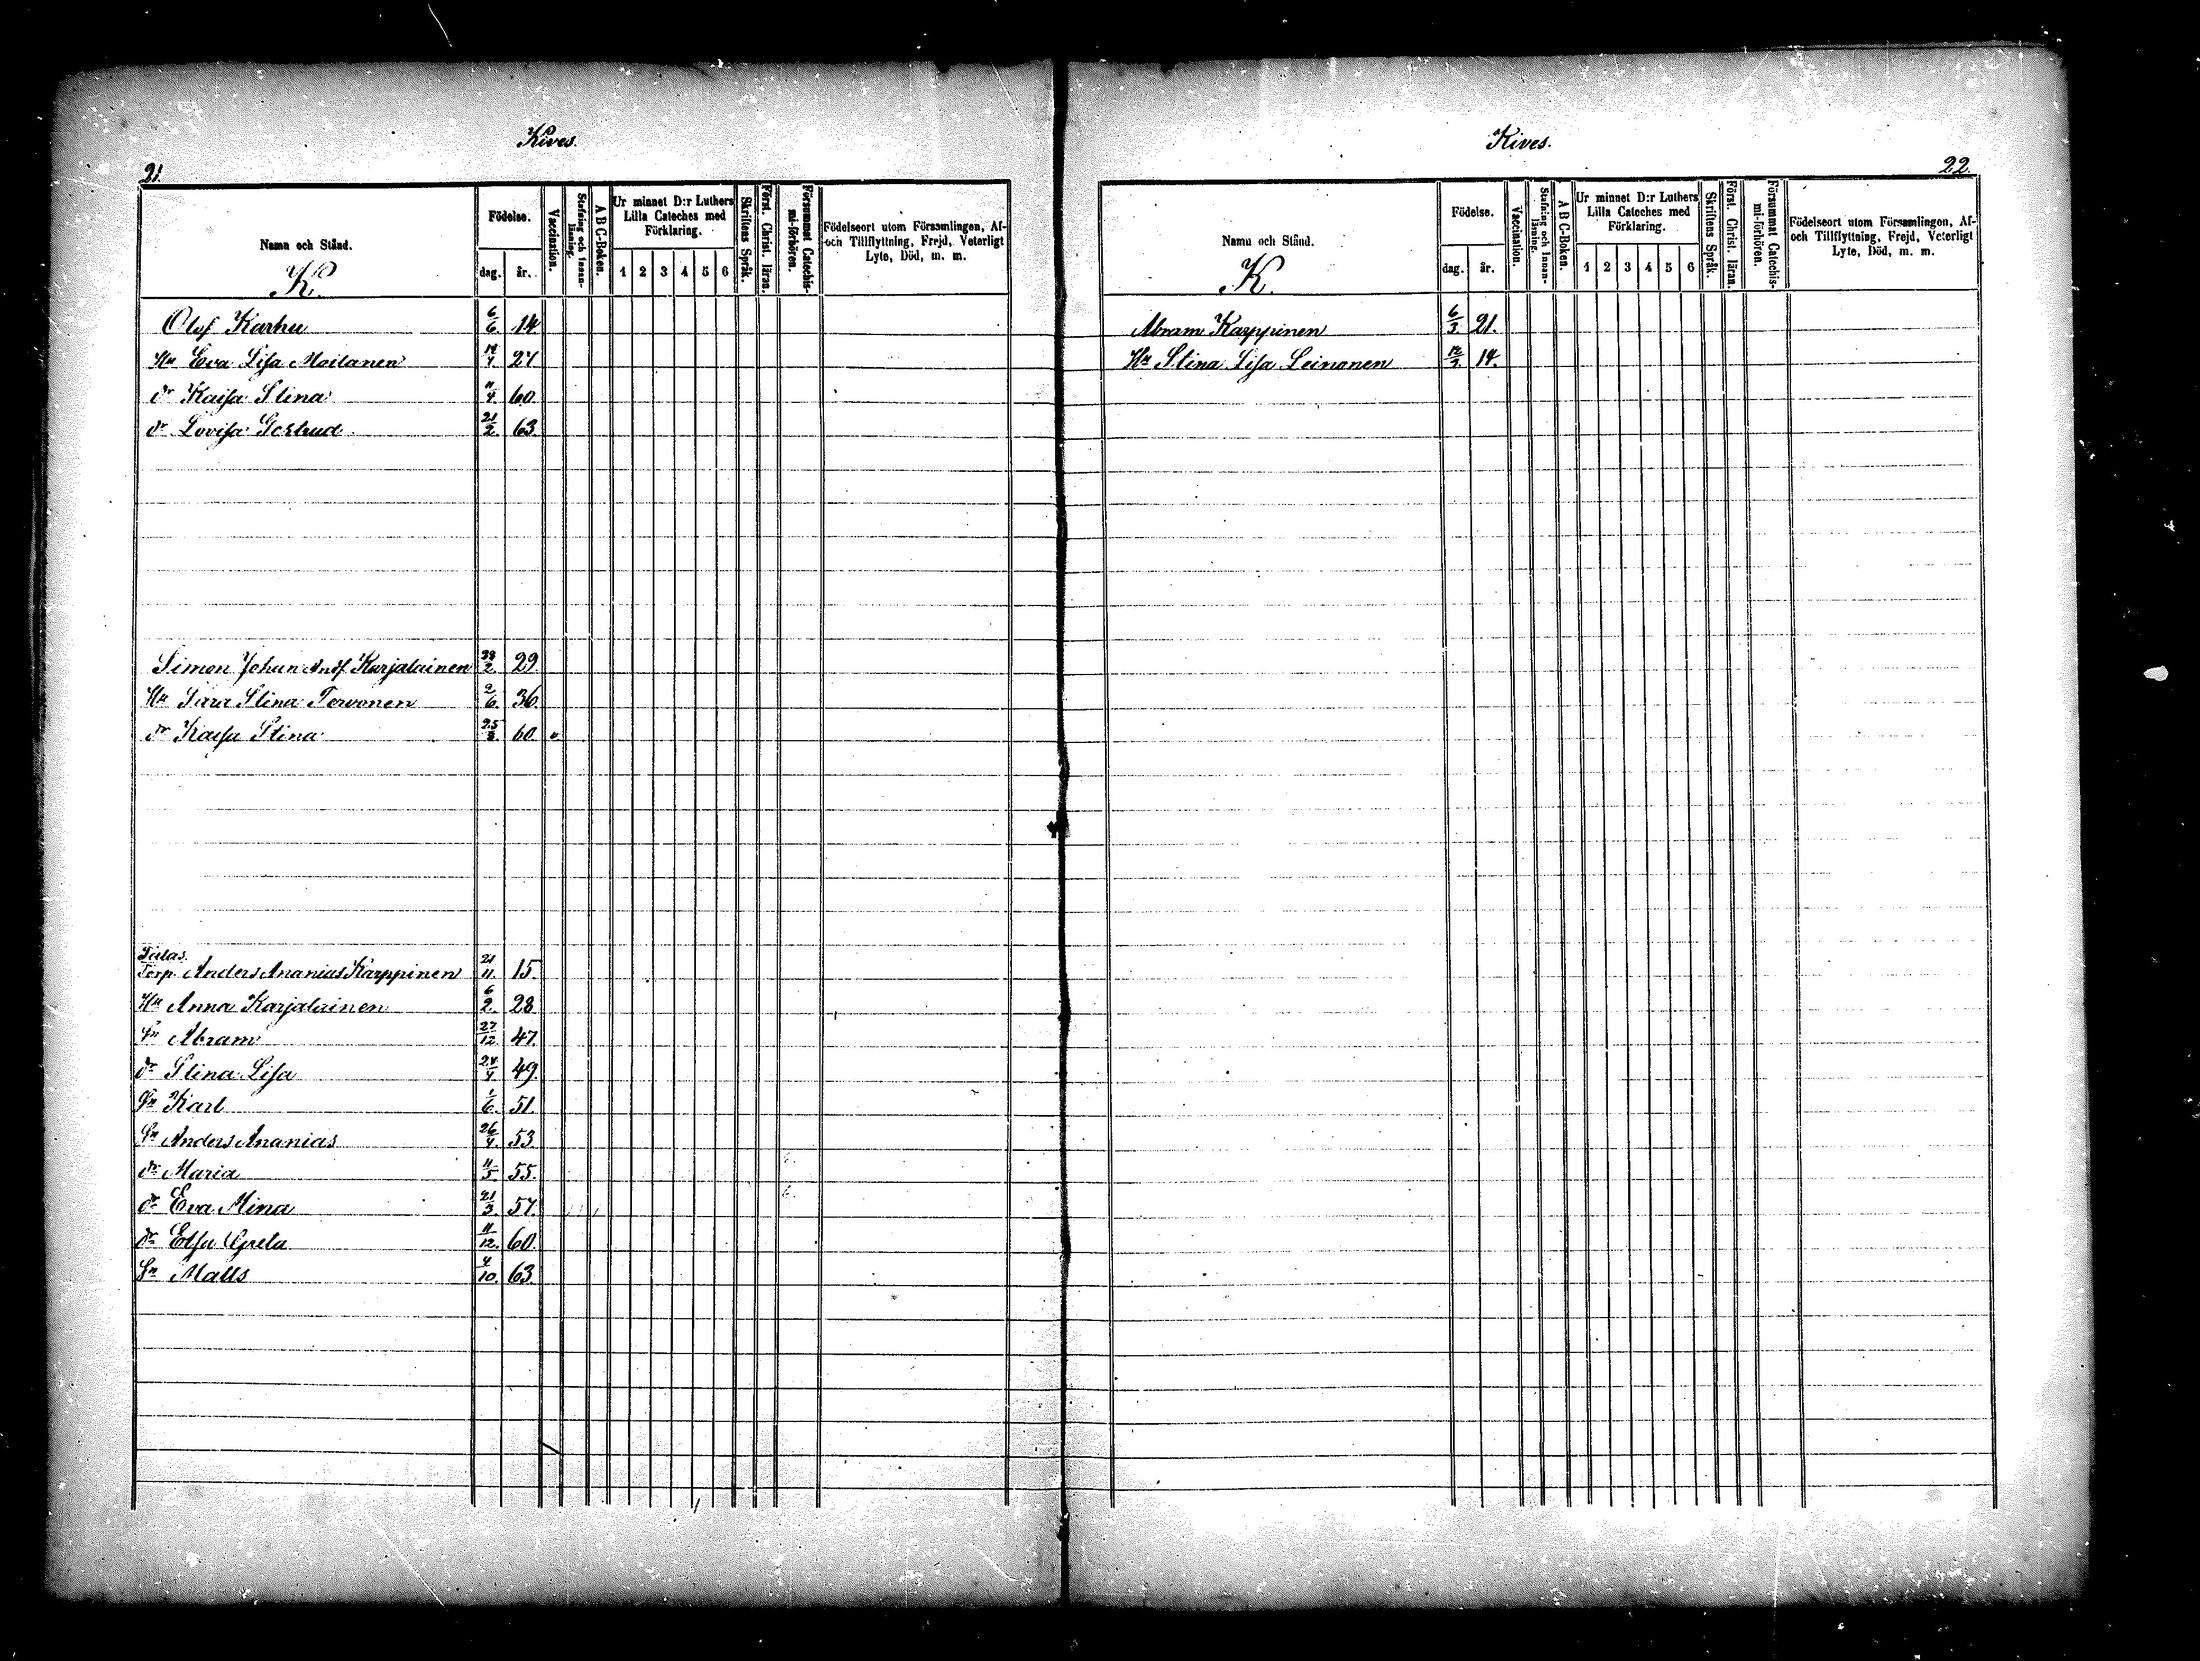 Kives.
21.
Namn och Stånd.
K.
Födelse.
dag. år.
Vaccination.
Stafning och Innan-läsning.
A B C-Boken.
Ur minnet D:r Luthers
Lilla Cateches med
Förklaring.
1 2 3 4 5 6
Skriftens Språk.
Först. Christ. läran.
Försummat Catechis-mi-förhören.
Födelseort utom Församlingen, Af-
och Tillflyttning, Frejd, Veterligt
Lyte, Död, m. m.
Olof Karhu 6/6 14
Hu Eva Lisa Moilanen 27
dr Kaisa Stina 11/4. 60.
dr Lovisa Gertrud 21/2. 63.
Simon Johan Andf. Karjalainen 29
Hu Sara Stina Tervonen 2/6. 36.
dr Kaisa Stina 60. v
Torp. Anders Ananias Karppinen 21/11. 15.
Hu Anna Karjalainen 6/2. 28
Sn Abram 27/12. 47.
dr Stina Lisa 24/4 49.
Sn Karl 1/6. 51.
Sn Anders Ananias 26/4. 53.
dr Maria 11/5. 55.
dr Eva Mina 21/3. 57.
dr Elsa Greta 11/12. 60.
Sn Matts 4/10. 63.
Kives.
22.
Namn och Stånd.
K.
Födelse.
dag. år.
Vaccination.
Stafning och Innan-läsning.
A B C-Boken.
Ur minnet D:r Luthers
Lilla Cateches med
Förklaring.
1 2 3 4 5 6
Skriftens Språk.
Först. Christ. läran.
Försummat Catechis-mi-förhören.
Födelseort utom Församlingen, Af-
och Tillflyttning, Frejd, Veterligt
Lyte, Död, m. m.
Abram Karppinen 6/3. 21.
Hu Stina Lisa Leinonen 14.